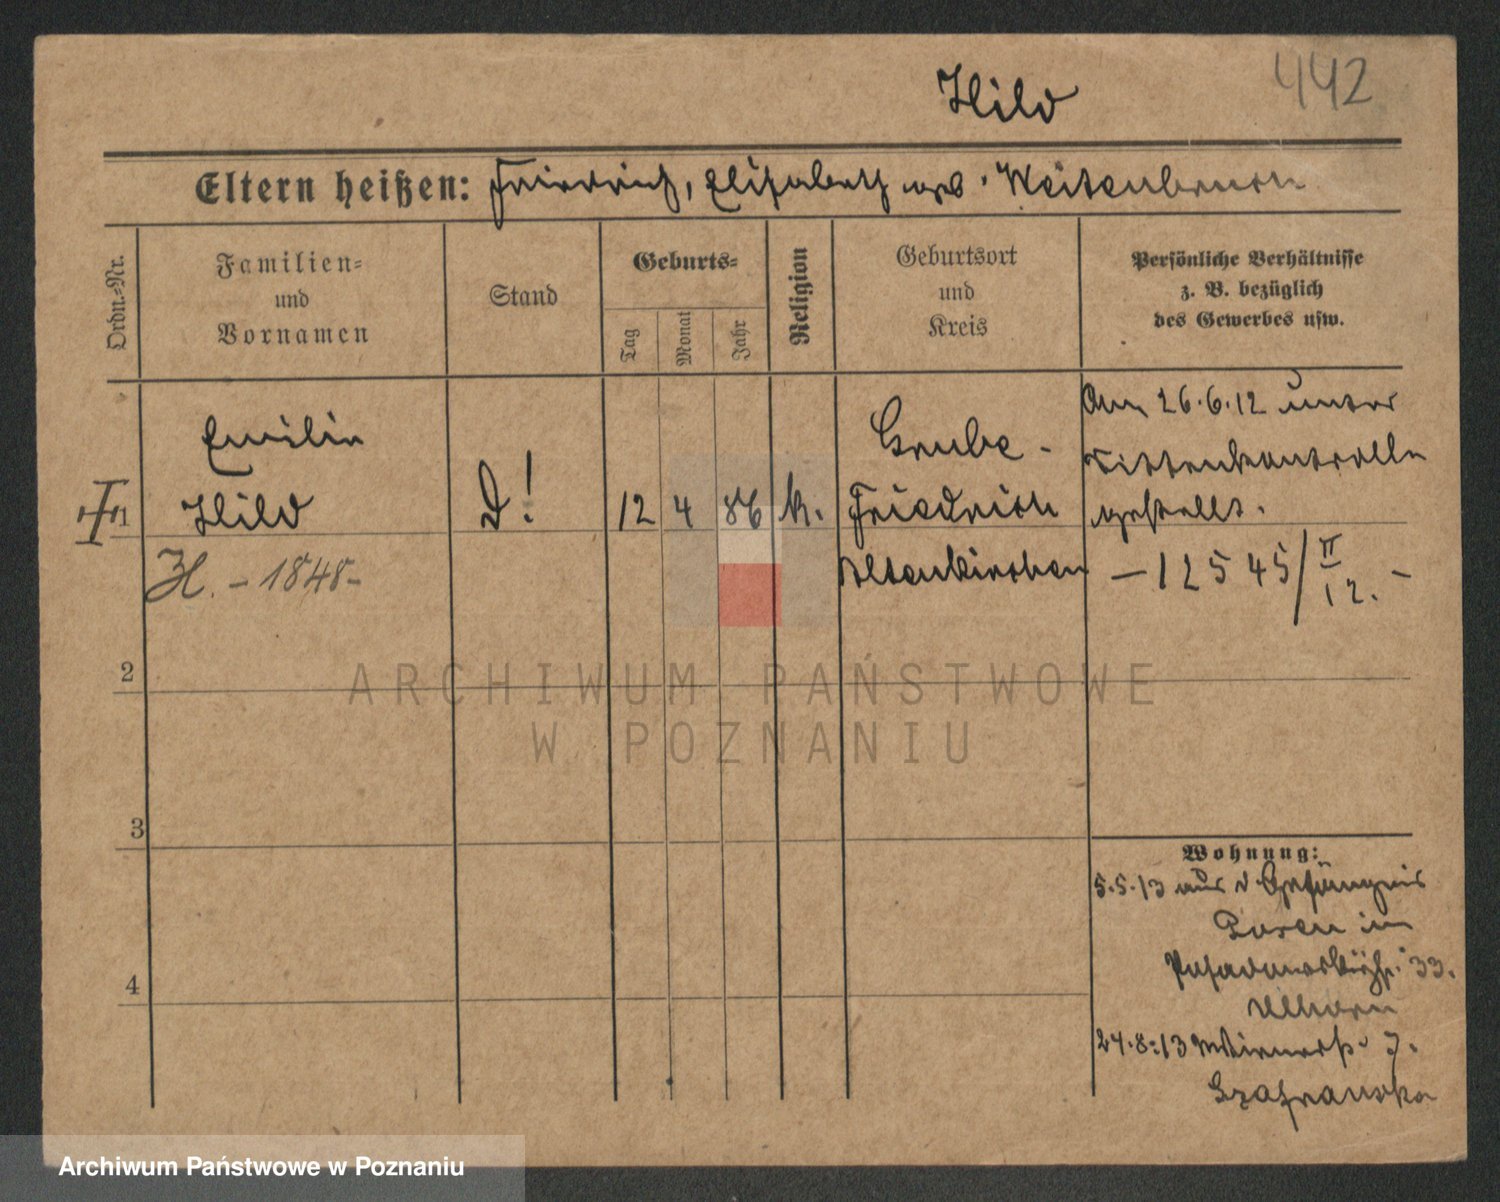 Hild
442
Eltern heißen: Friedrich, Elisabeth geb. Weitenbruch
Ordn.-Nr.
Familien-
und
Vornamen
Stand
Geburts-
Tag
Monat
Jahr
Religion
Geburtsort
und
Kreis
Persönliche Verhältnisse
z. B. bezüglich
des Gewerbes usw.
1
Emilie
Hild
H. - 1848-
D!
12 4 86
k.
Grube -
Friedrich
Altenkirchen
Am 26.6.12 unter
Sittenkontrolle
gestellt.
- 12545/II
12. -
2
3
4
Wohnung:
5.5.13 aus d Gefängnis
Posen in
33.
24.8.13 7.
Szafranska
ARCHIWUM PAŃSTWOWE
W POZNANIU
Archiwum Państwowe w Poznaniu